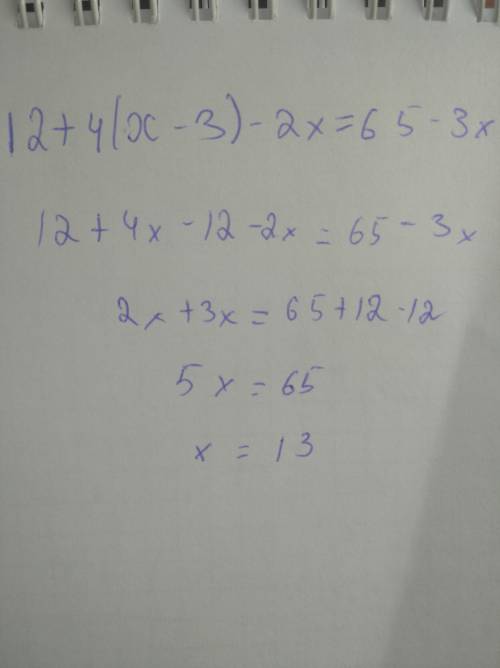 12+4(x-3)-2x=65-3x
12+4x-12-2x=65-3x
2x+3x=65+12-12
5x=65
x=13